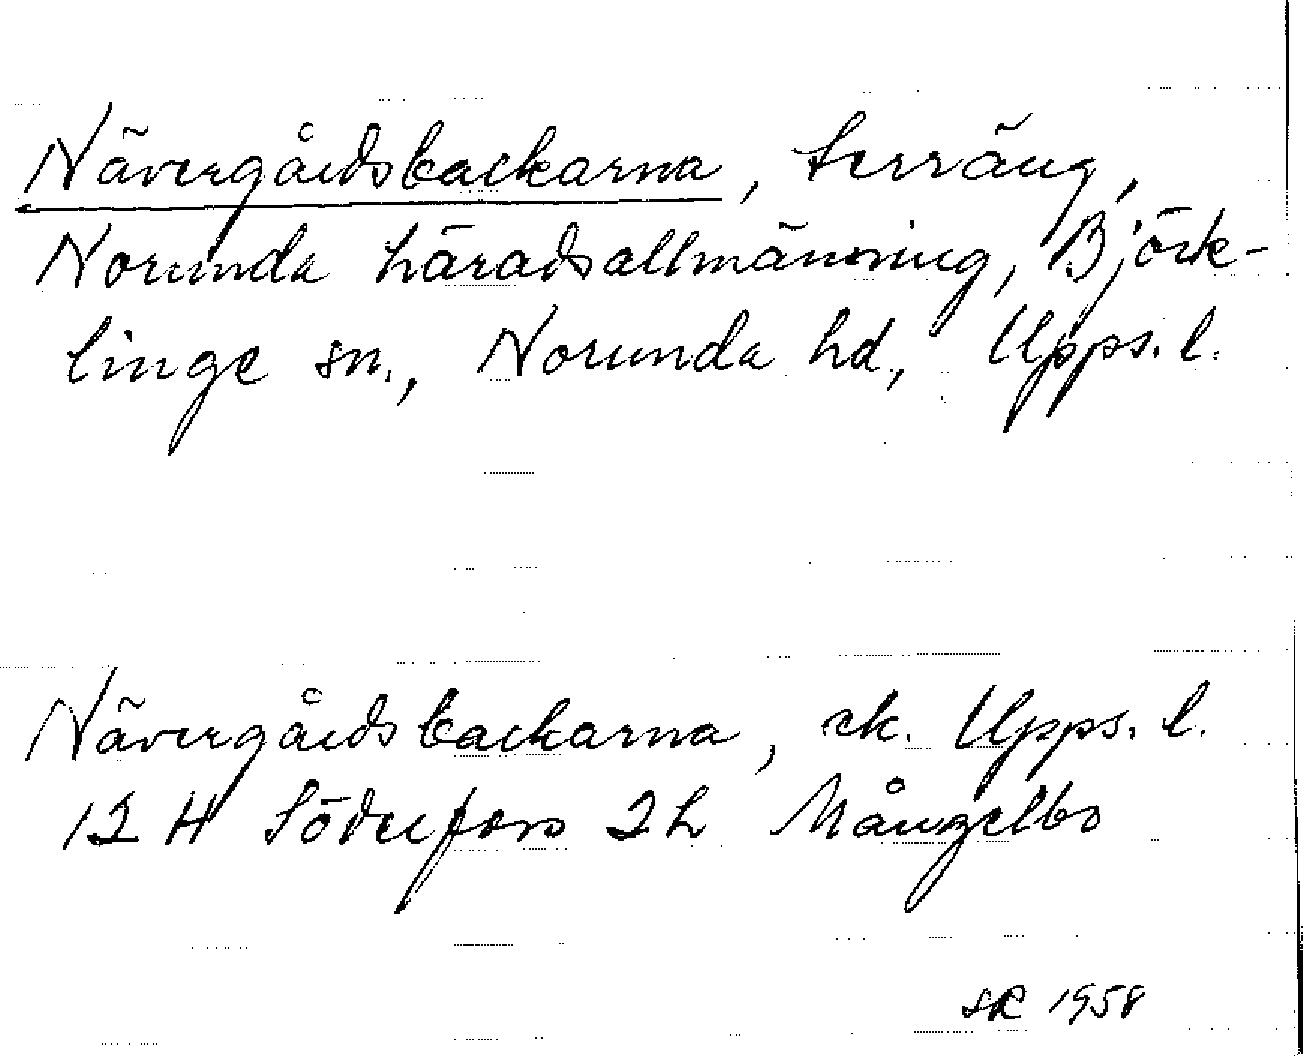 Nävergårdsbackarna, terräng,
Norunda häradsallmänning, Björk-
linge sn., Norunda hd, Upps. l.
Nävergårdsbackarna, ek. Upps. l.
12 H Söderfors 2h Mångelbo
SR 1958